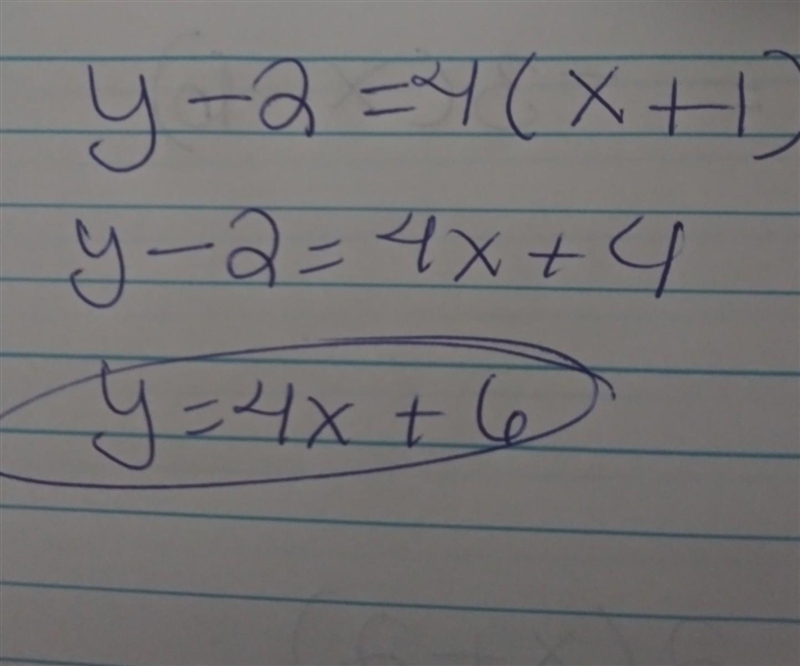 y - 2 = 4(x + 1)
y - 2 = 4x + 4
y = 4x + 6